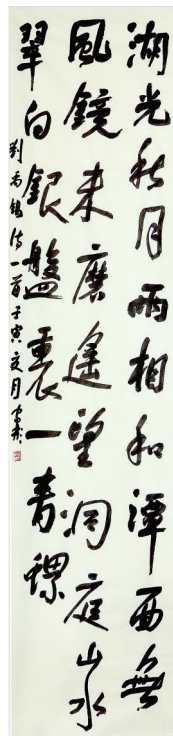 湖光秋月两相和潭面無
風鏡未磨遙望洞庭山水
翠白銀盤裏一青螺
劉禹錫詩一首壬寅夏月